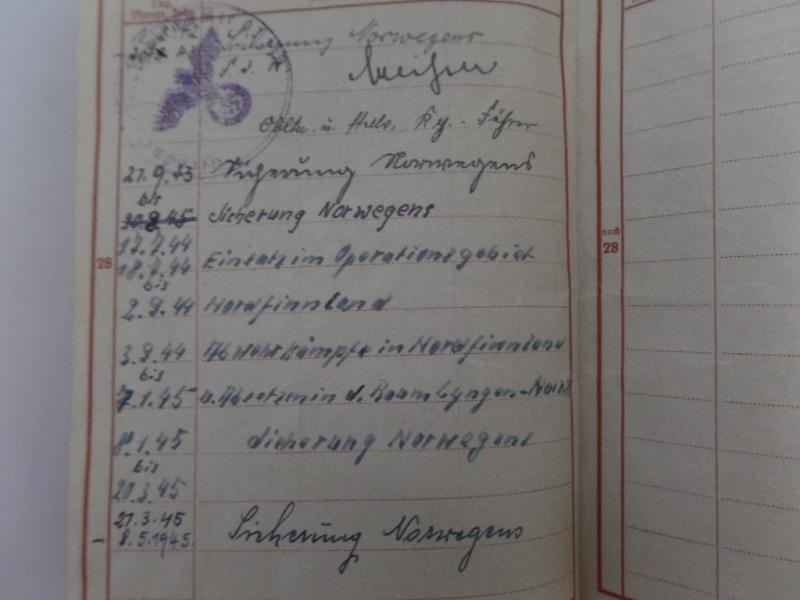 Sicherung Norwegens
Obltn. u. Kp. Führer
21.9.43 Sicherung Norwegens
bis
20.8.45 Sicherung Norwegens
17.7.44
28 18.7.44 Einsatz im Operationsgebiet
bis
2.9.44 Nordfinnland
3.9.44 Abwehrkämpfe in Nordfinnland
bis
7.1.45 u. Absetzen in d. Raum Lyngen-Narvik
8.1.45 Sicherung Norwegens
bis
20.3.45
21.3.45
- 8.5.1945. Sicherung Norwegens
noch
28